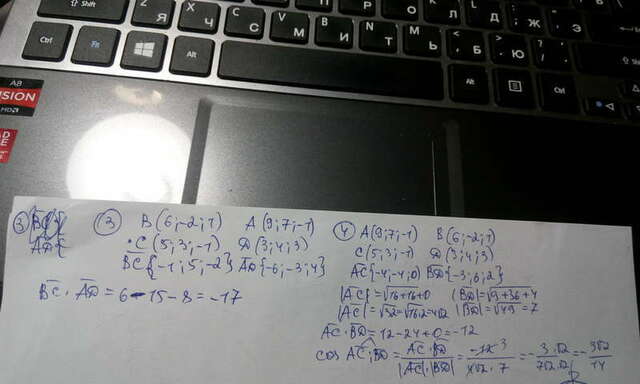 Shift
Z Я
X Ч
C С
V М
B И
N Т
M Ь
< Б
> Ю
Ctrl
Fn
Alt
Alt
Ctrl
A8
VISION
③ B(6;-2;1) A(9;7;-1)
C(5;3;-1) D(3;4;3)
BC{-1;5;-2} AD{-6;-3;4}
BC · AD = 6-15-8 = -17
④ A(9;7;-1) B(6;-2;1)
C(5;3;-1) D(3;4;3)
AC{-4;-4;0} BD{-3;6;2}
|AC| = √16+16+0 |BD| = √9+36+4
|AC| = √32 = √16·2 = 4√2 |BD| = √49 = 7
AC · BD = 12-24+0 = -12
cos AC;BD = AC·BD / |AC|·|BD| = -12 3 / 4√2·7 = -3·√2 / 7√2·√2 = -3√2 / 14